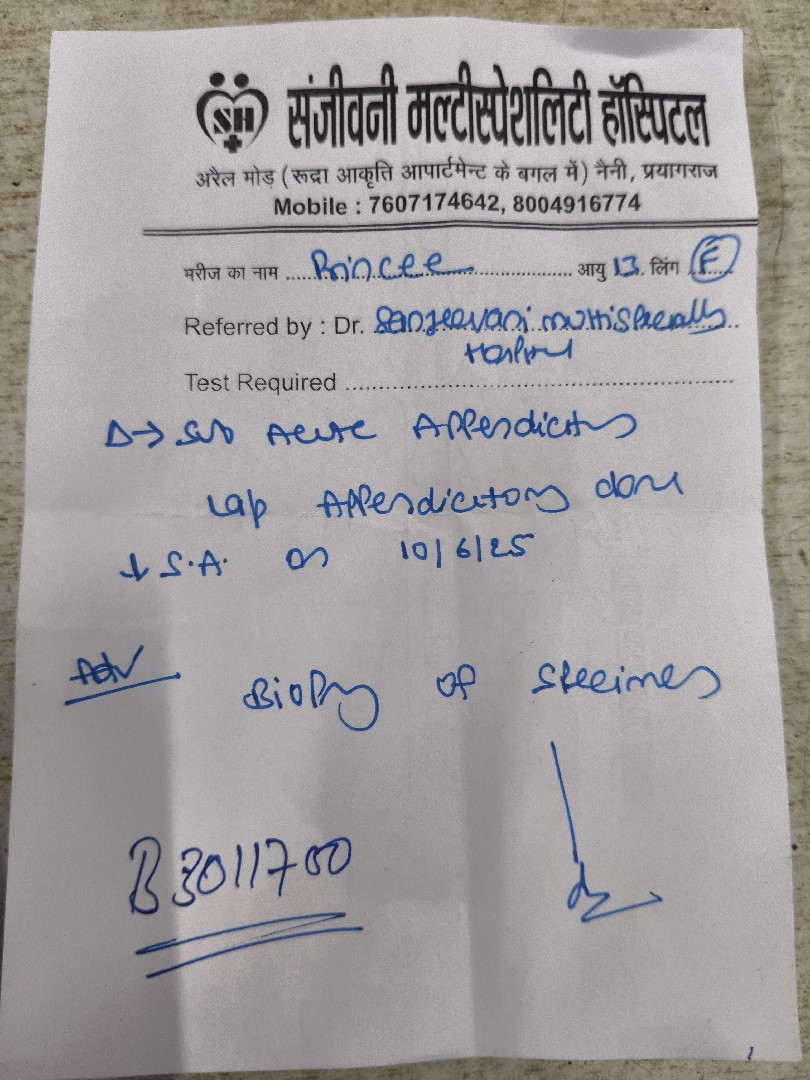 SH
संजीवनी मल्टीस्पेशलिटी हॉस्पिटल
अरैल मोड़ (रूद्रा आकृति आपार्टमेन्ट के बगल में) नैनी, प्रयागराज
Mobile : 7607174642, 8004916774
मरीज का नाम ...... Princee ...... आयु 13 लिंग F
Referred by : Dr. Sanjeevani multispecially
Hospital
Test Required ......
Δ→ Sub Acute Appendicitis
Lap Appendicitomy done
↓ S.A. on 10/6/25
Adv Biopsy of Specimen
B3011700